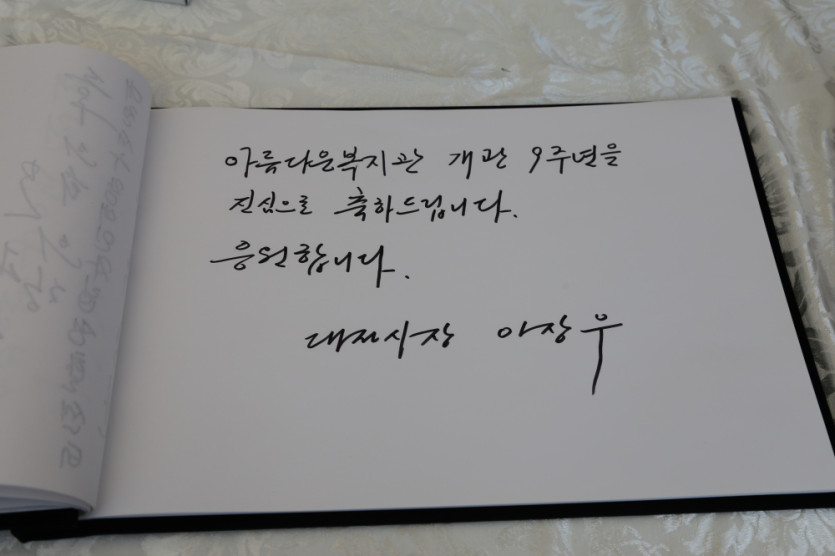 아름다운복지관 개관 9주년을
진심으로 축하드립니다.
응원합니다.
대전시장 이장우